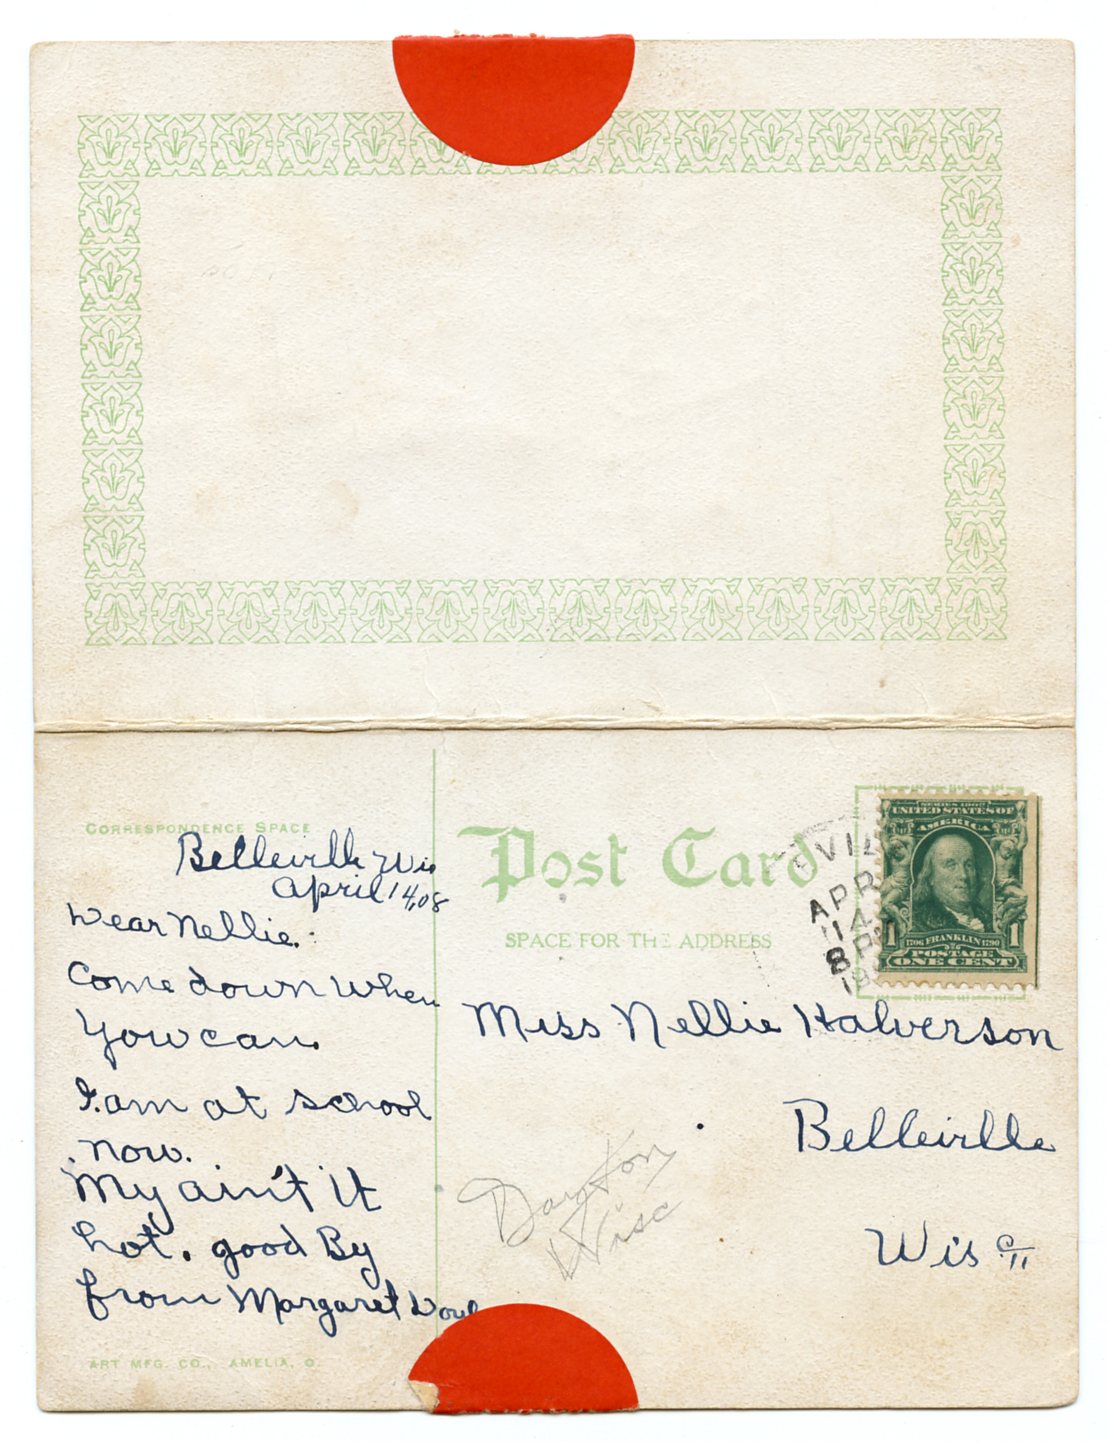 CORRESPONDENCE SPACE
Belleville Wis
April 14, 08
Dear Nellie:
Come down when
you can.
I am at school
now.
My ain't it
hot. good By
from Margaret
ART MFG. CO., AMELIA, O.
Post Card
SPACE FOR THE ADDRESS
VIL
APR
14
8 PM
SERIES 1902
UNITED STATES OF
AMERICA
1 1
1706 FRANKLIN 1790
POSTAGE
ONE CENT
Miss Nellie Halverson
Belleville
Wis
Dayton
Wisc